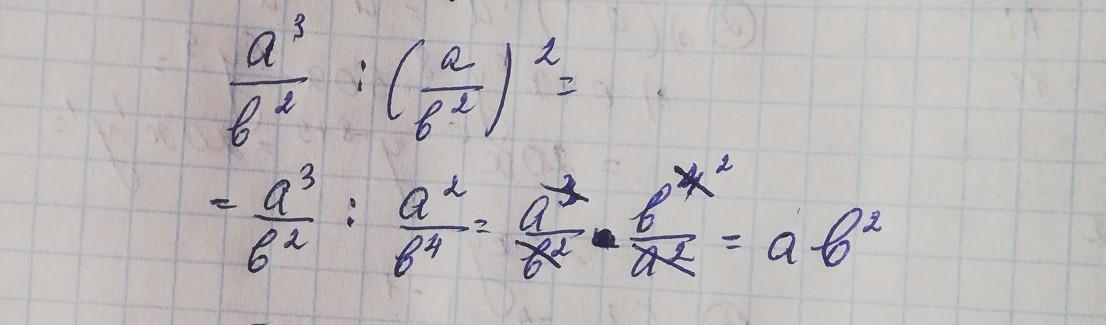 a³/b² : (a/b²)² =
= a³/b² : a²/b⁴ = a³/b² • b⁴ ²/a² = ab²